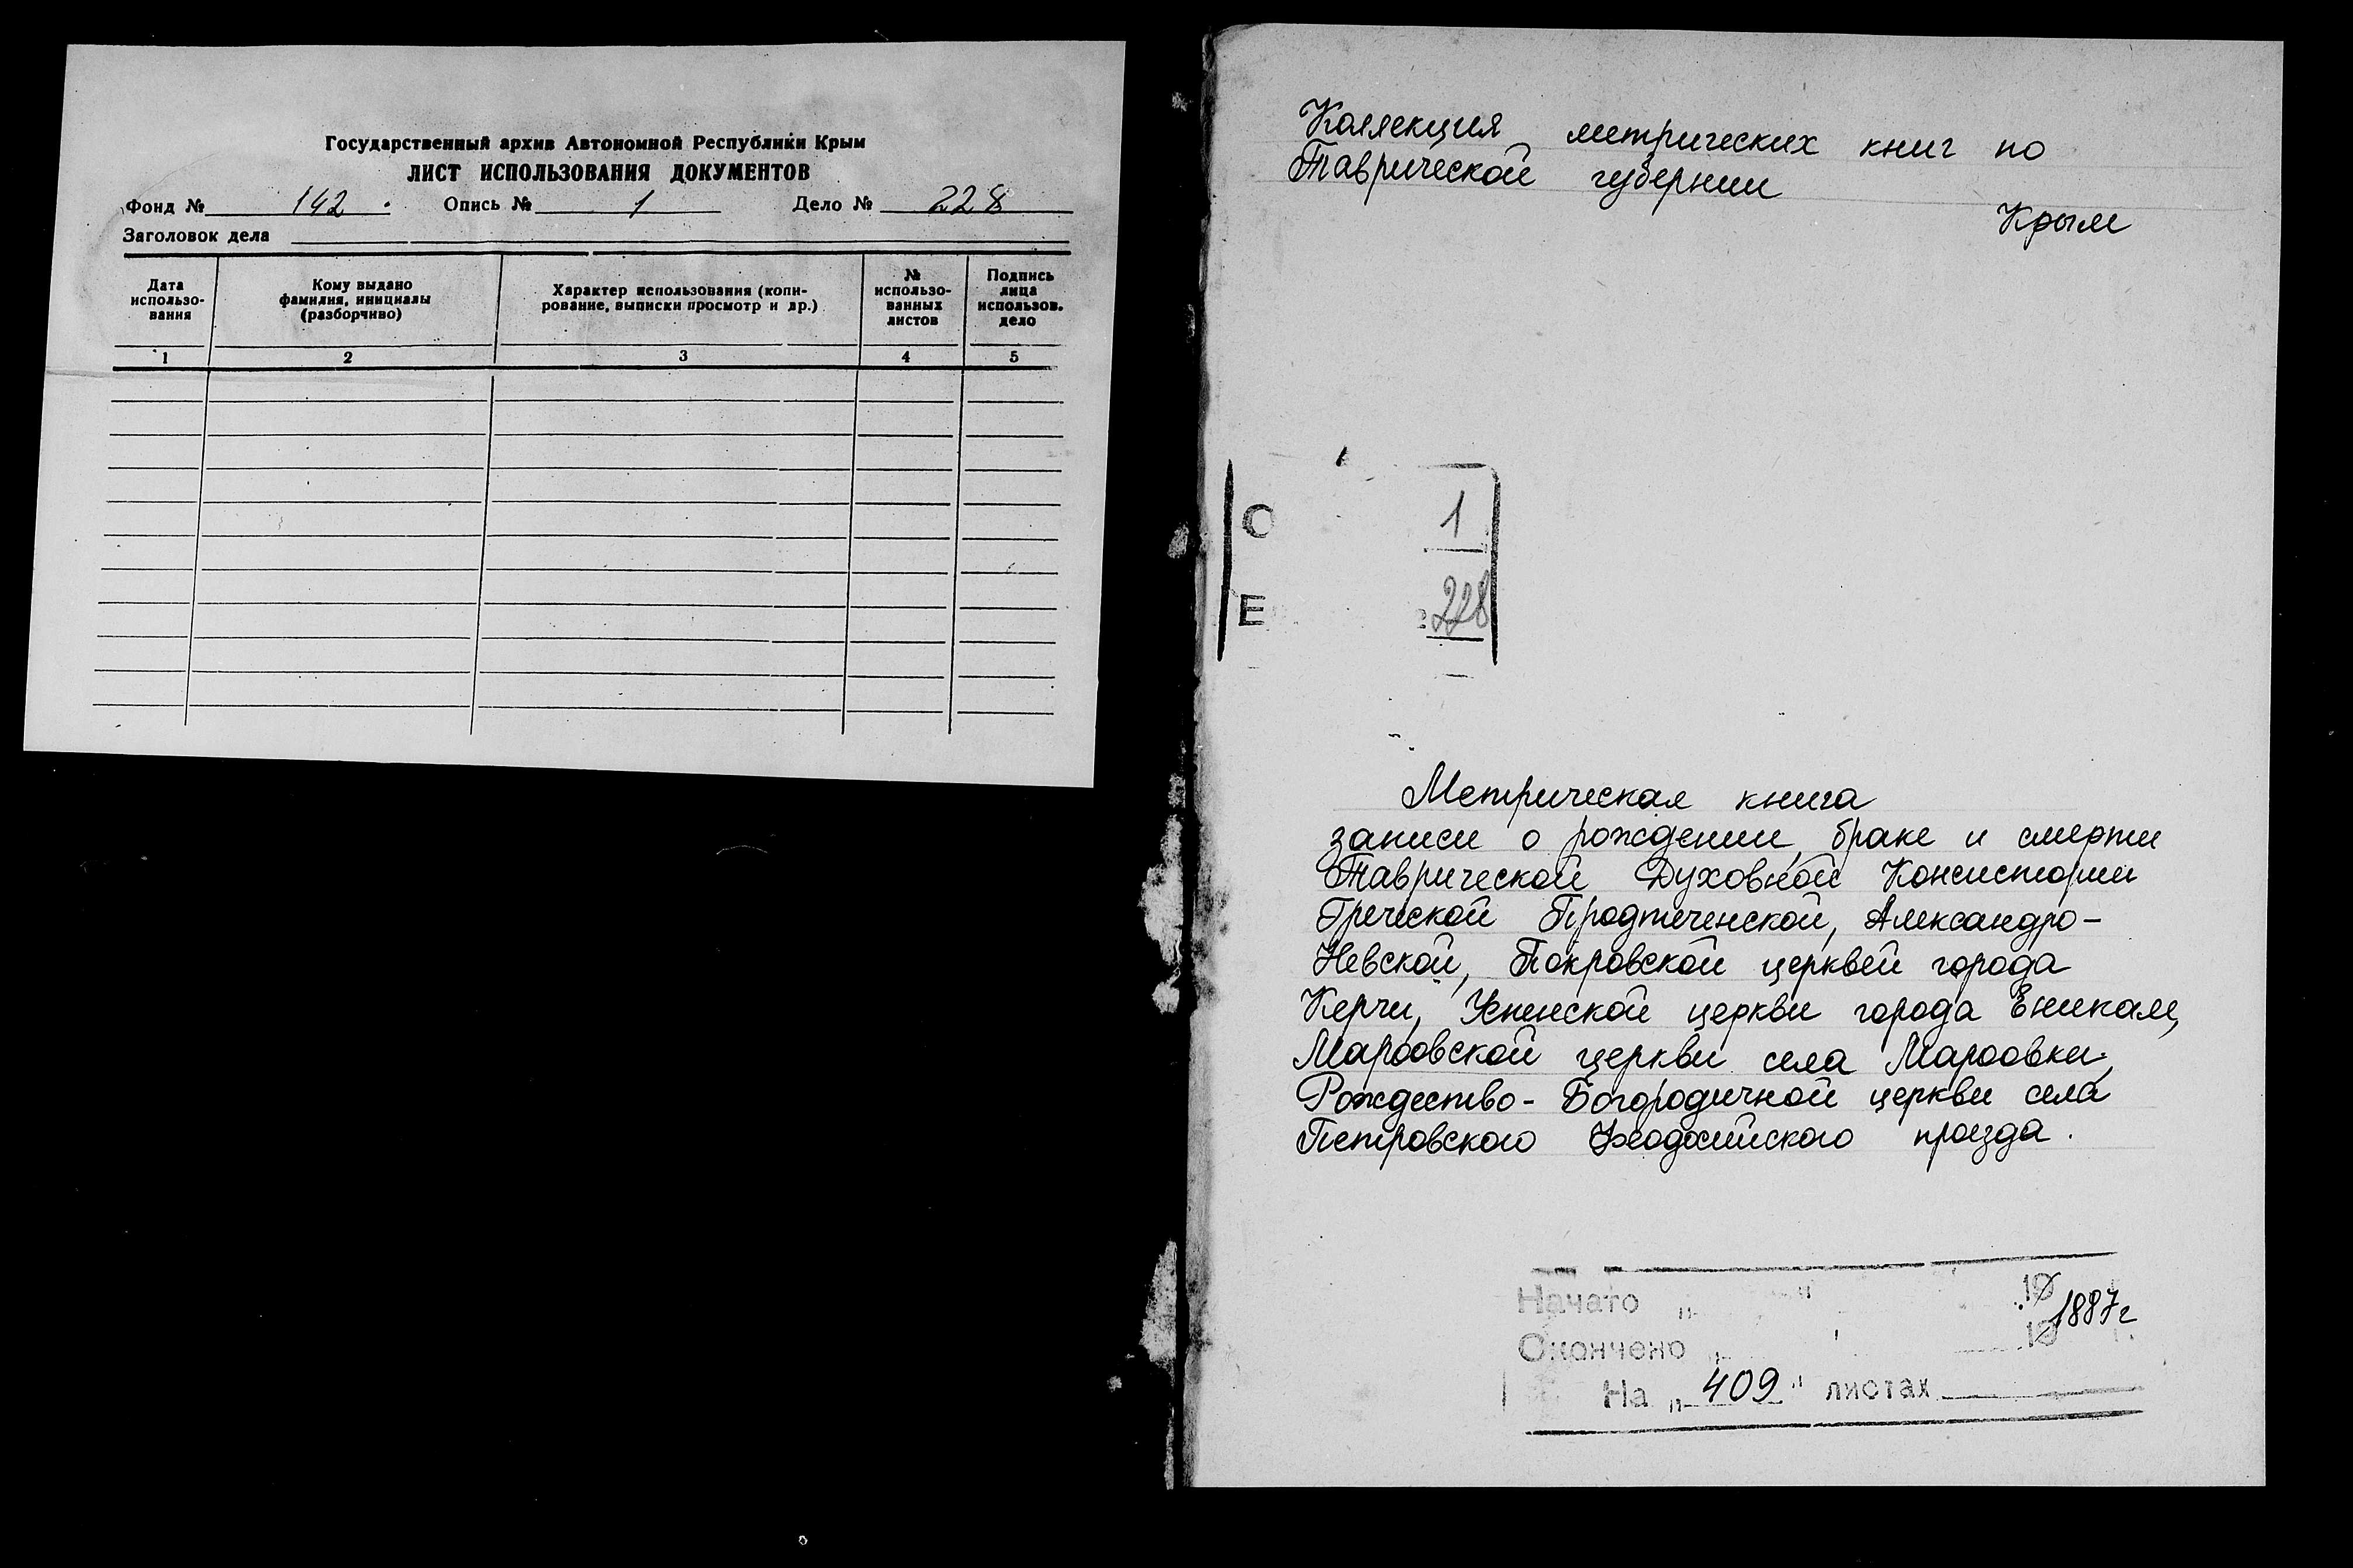 Государственный архив Автономной Республики Крым
ЛИСТ ИСПОЛЬЗОВАНИЯ ДОКУМЕНТОВ
Фонд № 142 Опись № 1 Дело № 228
Заголовок дела
Дата использо-вания
Кому выдано фамилия, инициалы (разборчиво)
Характер использования (копи-рование, выписки просмотр и др.)
№ использо-ванных листов
Подпись лица использов. дело
1 2 3 4 5
Коллекция метрических книг по
Таврической губернии
Крым
О 1
Е 228
Метрическая книга
записи о рождении, браке и смерти
Таврической Духовной Консистории
Греческой Предтеченской, Александро-
Невской, Покровской церквей города
Керчи, Успенской церкви города Еникале,
Марфовской церкви села Марфовки,
Рождество-Богородичной церкви села
Петровского Феодосийского
Начато „ " 19
1887г
Окончено „ 19
На „ 409 " листах